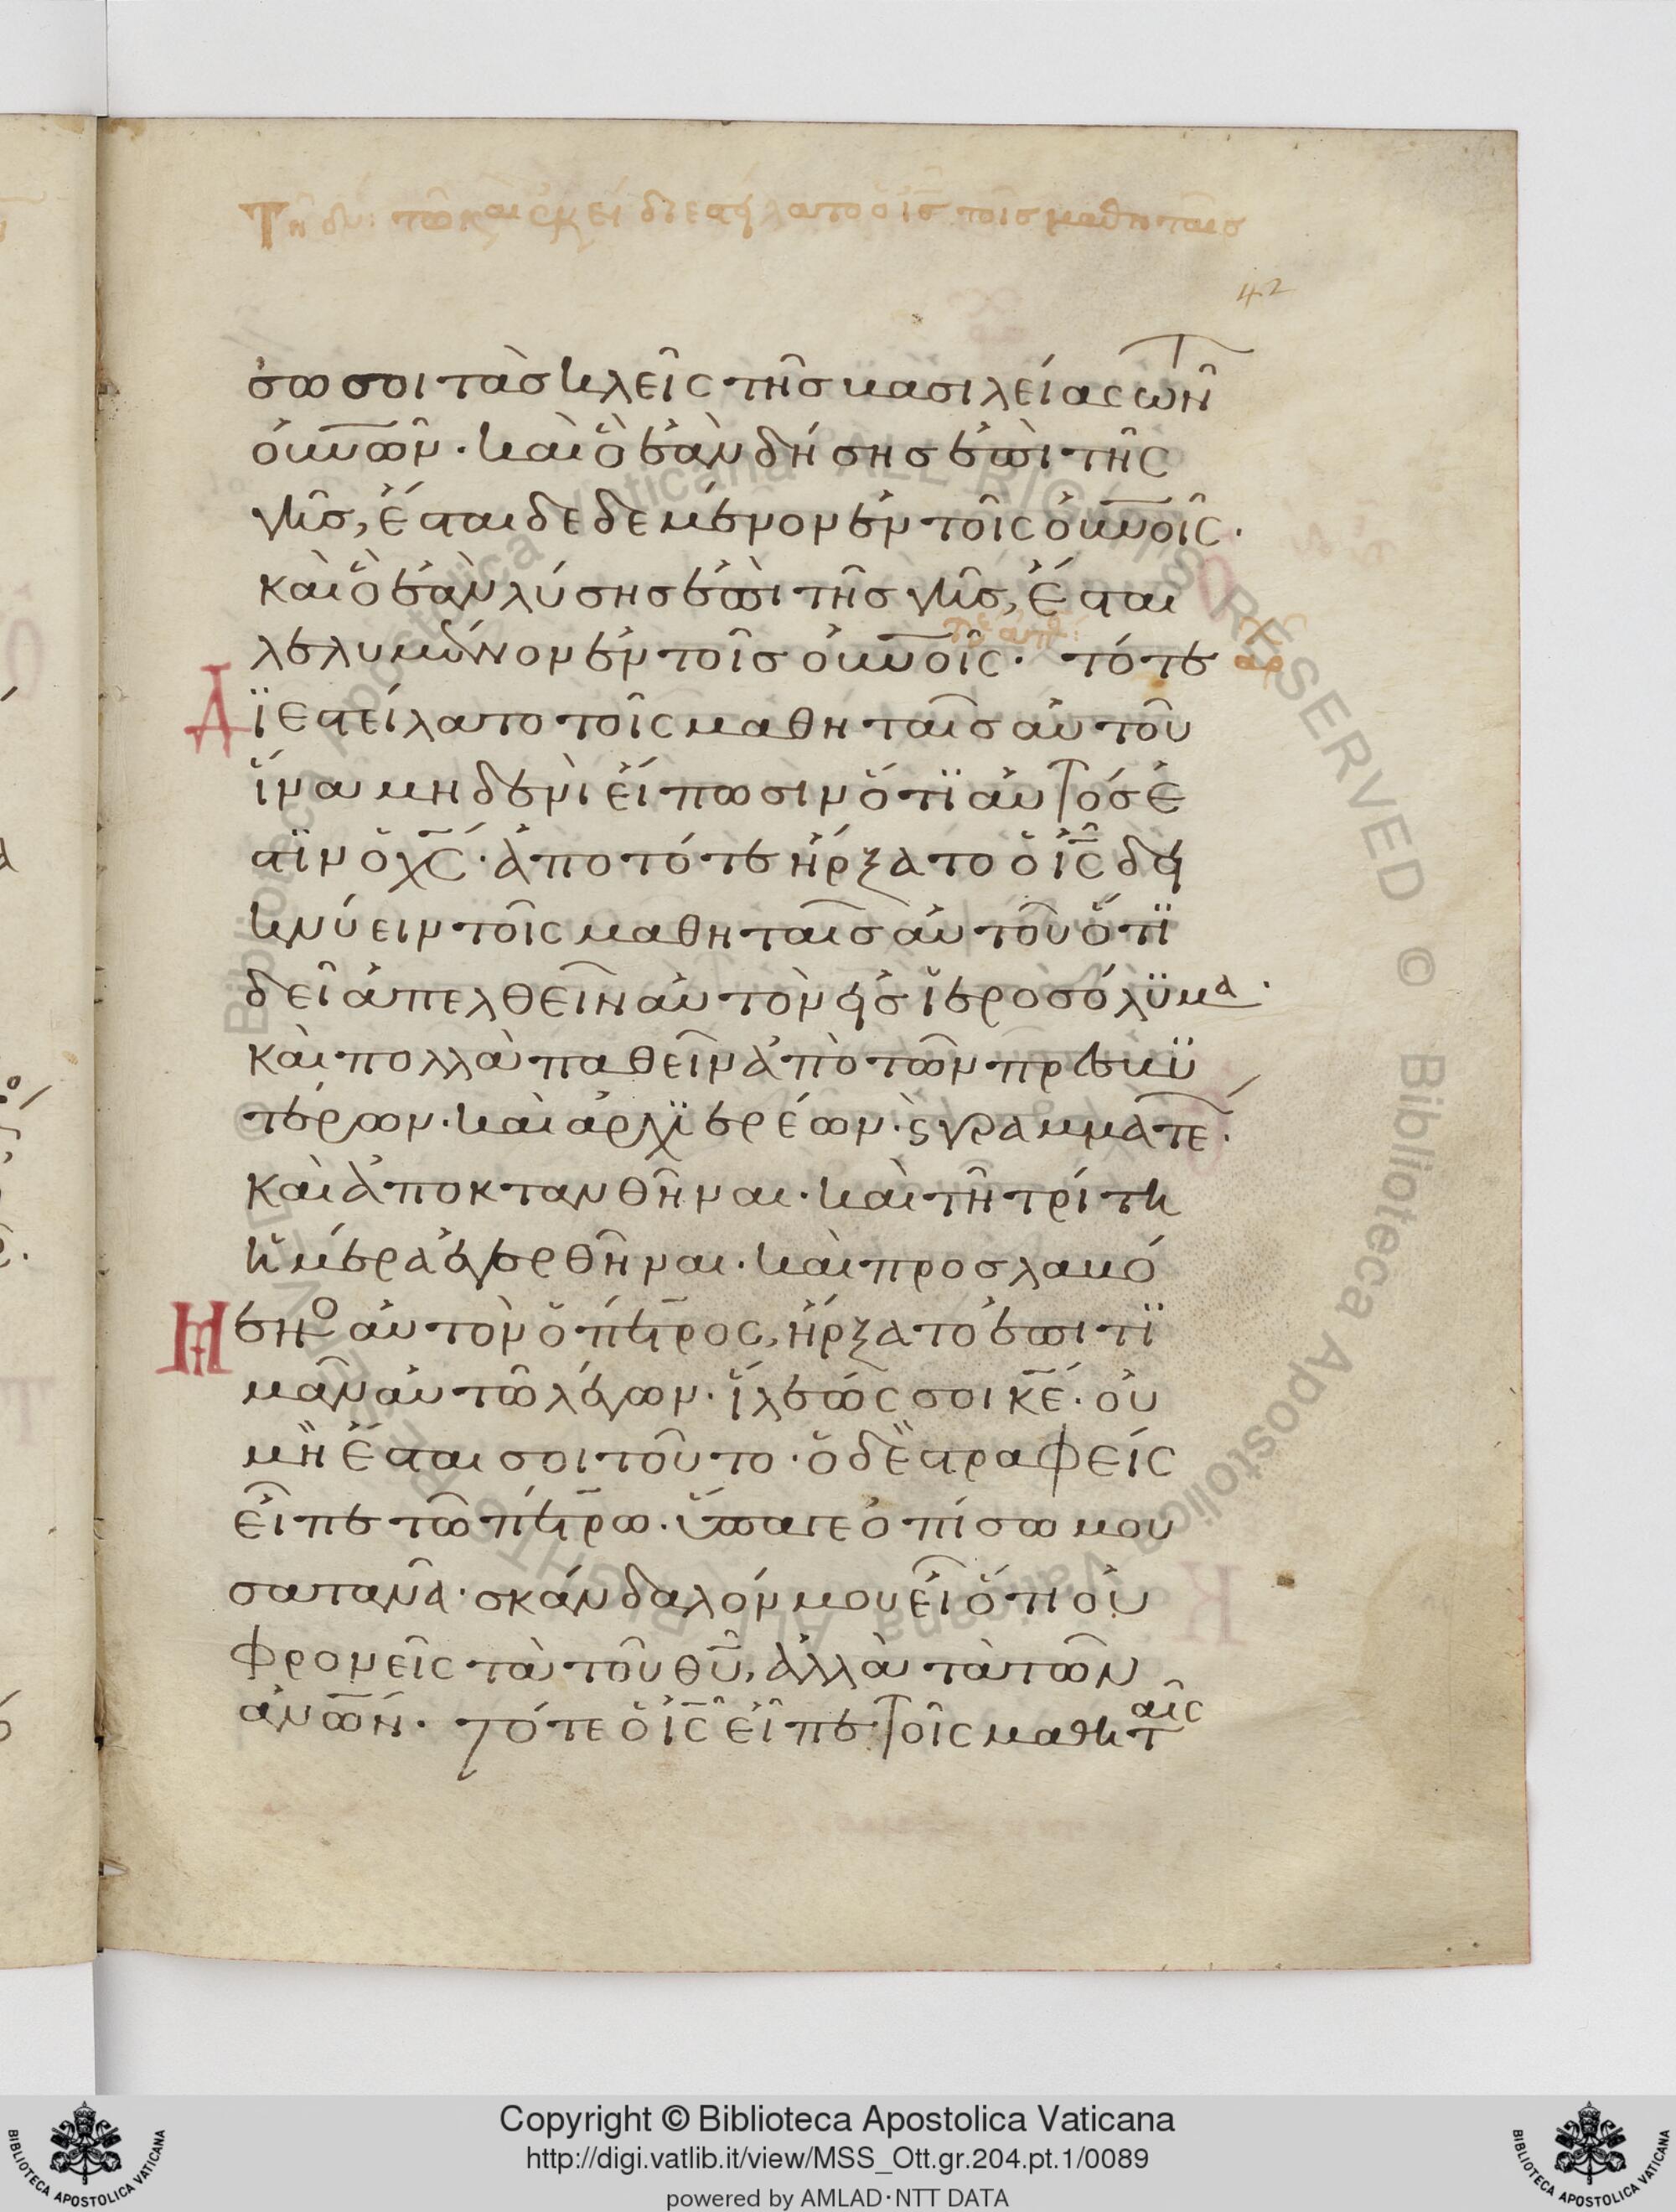 42
σω σοι τὰς κλεῖς τῆς βασιλείας τῶν
οὐν̅ῶν· καὶ ὃ ἐὰν δήσης ἐπὶ τῆς
γῆς, ἔσται δεδεμένον ἐν τοῖς οὐν̅οῖς·
καὶ ὃ ἐὰν λύσης ἐπὶ τῆς γῆς, ἔσται
λελυμένον ἐν τοῖς οὐν̅οῖς· τότε
Δϊεστείλατο τοῖς μαθηταῖς αὐτοῦ
ἵνα μηδενὶ εἴπωσιν ὅτϊ αὐτός ἐ
στϊν ὁ χ̅ς· ἀπο τότε ἤρξατο ὁ ι̅ς δει
κνύειν τοῖς μαθηταῖς αὐτοῦ ὅτϊ
δεῖ ἀπελθεῖν αὐτὸν εἰς ἱεροσόλϋμα·
καὶ πολλὰ παθεῖν ἀπὸ τῶν πρεσβϋ
τέρων· καὶ ἀρχϊερέων· ϛ γραμματέ·
καὶ ἀποκτανθῆναι· καὶ τῆ τρίτη
ἡμέρα ἐγερθῆναι· καὶ προσλαβό
Μενο αὐτὸν ὁ πέτρος, ἤρξατο ἐπιτϊ
μᾶν αὐτῶ λέγων· ἵλεώς σοι κ̅ε· οὐ
μὴ ἔσται σοι τοῦτο· ὁ δὲ στραφείς
εἶπε τῶ πέτρω· ὕπαγε ὀπίσω μου
σατανᾶ· σκάνδαλόν μου εἶ ὅτι οὐ
φρονεῖς τὰ τοῦ θ̅υ, ἀλλὰ τὰ τῶν
αν̅ων· τότε ὁ ι̅ς εἶπε τοῖς μαθηταῖς
Copyright © Biblioteca Apostolica Vaticana
http://digi.vatlib.it/view/MSS_Ott.gr.204.pt.1/0089
powered by AMLAD·NTT DATA
BIBLIOTECA APOSTOLICA VATICANA
BIBLIOTECA APOSTOLICA VATICANA